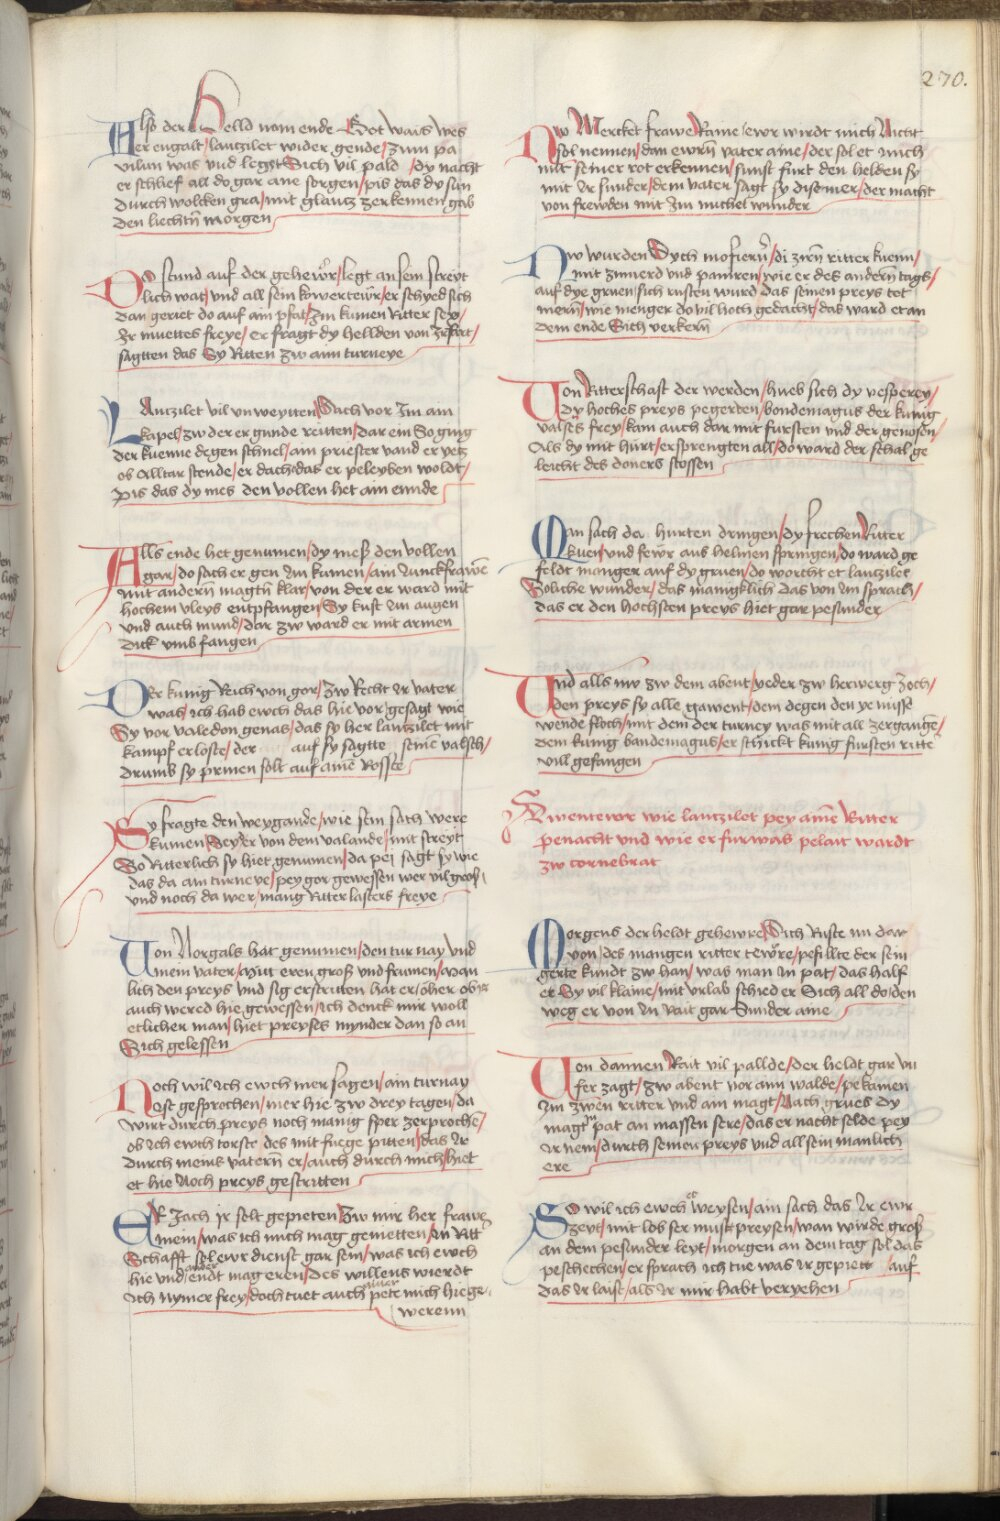 270.
Also der Helld nam ende Got wais wes
er engalt/lantzilet wider gende/zum pa
vilun was vnd legzt Sich vil pald /dy nacht
er schlief all do gar ane sorgen/pis das dy sun
durch wolcken gra/mit glantz zerkennen gab
den liechtn̄ morgen
Do stund auf der gehewr/legt an sein streyt
lich wat/vnd all sein kowerteur/er schyed sich
dan geriet do auf am pfat/Im kumen Ritter sex/
Ir muettes freye/er fragt dy hellden von Ir fart/
sagtten das Sy Ritten zw aim turneye
Lantzilet vil vnweytten Sach vor Im am
kapel/zw der er gunde reitten/dar ein So ging
der kuenne degen schnel/am priester vand er yetz
ob Alltar stende/er dacht das er peleyben woldt/
pis das dy mes den vollen het ain ennde
Alls ende het genumen/dy meß den vollen
gar/do sach er gen Im kumen/am Junckfrawe
mit andern̄ magtn̄ klar/von der er ward mit
hochem vleys entpfangen/Sy kust Im augen
vnd auch mund/dar zw ward er mit armen
dick vmbfangen
Der kunig Reich von gor/Zw Recht Ir vater
was/ich hab ewch das hie vor gesagt wie
Sy vor valedon genas/das sy her lantzilet mit
kampf erloste/der auf sy sagtte seine valsch/
drumb sy prinen solt auf ame Rosste
Sy fragte den weygande/wie sein sach were
kumen Seyder von dem valande/mit streyt
So Ritterlich sy hiet genumen/da pei sagt sy wie
das da am turneye/pey gor gewessen wer vil groß/
vnd noch da wer/manig Ritter lasters freye
Von Norgals hat genumen/den turnay vnd
mein vater/Mit eren groß vnd frumen/Man
lich den preys vnd sig erstritten hat er/oher ob Ir
auch wered hie gewessen/ich denck mir woll
etlicher man/hiet preyses mynder dan so an
Sich gelessen
Noch wil Ich ewch mer sagen/ain turnay
ist gesprochen/mer hie zw drey tagen/da
wirt durch preys noch manig sper zerproche/
ob ich ewch torste des mit fuege pitten/das Ir
durch meins vatern̄ er/auch durch mich/hiet
et hie Noch preys gestritten
Er Jach ir solt gepieten Zw mir her frawe
mein/was ich mich mag genietten/an Ritt
Schafft sol ewr dienst gar sein/was ich ewch
hie vnd ander endt mag eren/des willens wierdt
Ich nymer frey/doch tuet auch ainer pete mich hie ge
werenn
Nw Mercket frawe Raine/ewr wirdt mich Nicht
sol nennen/dan ewrn̄ vater aine/der sol et mich
mit seiner rot erkennen/sunst furt den helden sy
mit Ir sunder/dem vater sagt sy dise mer/der macht
von frewden mit Im michel wunder
Nw wurden Sych mosiern̄/di zirn̄ ritter kuenn/
mit zimerd vnd pauiren/wie er des andern̄ tags/
auf dye gruen/sich rusten wurd das seinen preys tet
mern̄/wie menger do vil hoch gedacht/das ward et an
dem ende Sich verkern̄
Von Ritterschaft der werden/hueb sich dy vesperey/
Dy hoches preys pegerden/bondemagus der kunig
valsches frey/kam auch dar mit fursten vnd der genosen/
Als dy mit hurt/ersprengten all/do ward der schal ge
leicht des doners stossen
Man sach da hurten dringen/dy frechen Ritter
kuen/vnd fewr aus helmen springen/do ward ge
feldt manger auf dy gruen/do worcht et lantzilet
Soliche wunder/das manigklich das von Im sprach/
das er den hochsten preys hiet gar pesunder
Vnd alls nw zw dem abent/yeder zw herwerg Zoch/
den preys sy alle gawent/dem degen den ye misse
wende floch/mit dem der turney was mit all zergange/
Dem kunig bandemagus/er schickt kunig fursten ritte
vill gefangen
Awentewr wie lantzilot pey ame Ritter
penacht vnd wie er furwas pelait wardt
zw cornebrat
Morgens der heldt gehewre/Sich Ruste nu dar
von/des mangen ritter tewre/pefillte der sein
gerte kundt zw han/was man In pat/das half
et Sy vil klaine/mit vrlab schied er Sich all do/den
weg er von In rait gar Sunder aine
Von dannen Rait vil pallde/der heldt gar vn
fer zagt/zw abent vor ann walde/pekamen
Im zwen ritter vnd am magt/Nach grues dy
magt In pat an massen sere/das er nacht selde pey
Ir nem/durch seinen preys vnd all sein manlich
ere
So wil ich ewch er weysen/am sach das Ir ewr
zeyt/mit lob ser must preysen/wan wirde groß
an dem pesunder leyt/morgen an dem tag sol das
peschechen/er sprach ich tue was Ir gepiett auf
das Ir laist/als Ir mir habt veryehen